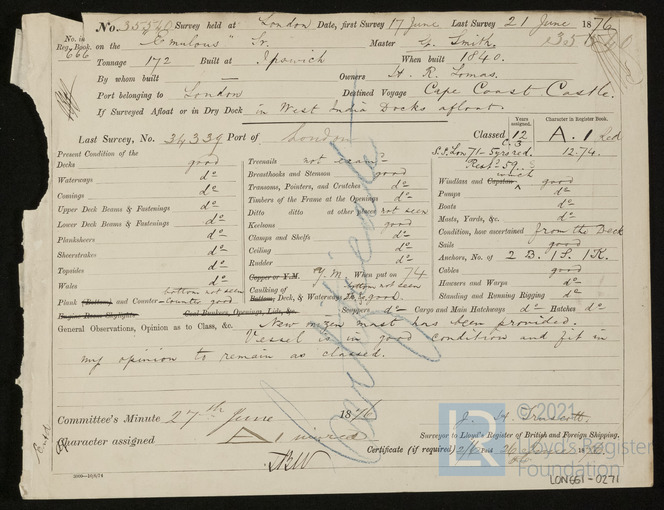 No. 35540 Survey held at London Date, first Survey 17 June Last Survey 21 June 1876
No. in Reg. Book. 666 on the "Emulous" Sr. Master G. Smith 35540
Tonnage 172 Built at Ipswich When built 1840.
By whom built — Owners H. R. Lomas.
Port belonging to London Destined Voyage Cape Coast Castle.
If Surveyed Afloat or in Dry Dock in West India Docks afloat.
Last Survey, No. 34339 Port of London Classed 12 A.1 red
Years assigned. Character in Register Book.
S.S. Lon 71-5yrs red. 12.74.
Present Condition of the
Decks good
Waterways do
Comings do
Upper Deck Beams & Fastenings do
Lower Deck Beams & Fastenings do
Planksheers do
Sheerstrakes do
Topsides do
Wales do
bottom not seen
Plank (Bottom) and Counter Counter good
Engine Room Skylights. Coal Bunkers, Openings, Lids, &c.
Treenails not exam
Breasthooks and Stemson good
Transoms, Pointers, and Crutches do
Timbers of the Frame at the Openings do
Ditto ditto at other places not seen
Keelsons good
Clamps and Shelfs do
Ceiling do
Rudder do
Copper or Y.M. Y.M. When put on 74
Caulking of bottom not seen
Bottom, Deck, & Waterways good.
Windlass and Capstan winch good
Pumps do
Boats do
Masts, Yards, &c. do
Condition, how ascertained from the Deck
Sails good
Anchors, No. of 2 B. 1 S. 1 K.
Cables good
Hawsers and Warps do
Standing and Running Rigging do
Scuppers do Cargo and Main Hatchways do Hatches do
General Observations, Opinion as to Class, &c. New mizen mast has been provided.
Vessel is in good condition and fit in
my opinion to remain as classed.
Committee's Minute 27th June 1876
Character assigned A 1 in red
J. H. Truscott.
Surveyor to Lloyd's Register of British and Foreign Shipping.
Certificate (if required)
© 2021
LR
Lloyd's Register
Foundation
LON661-0271